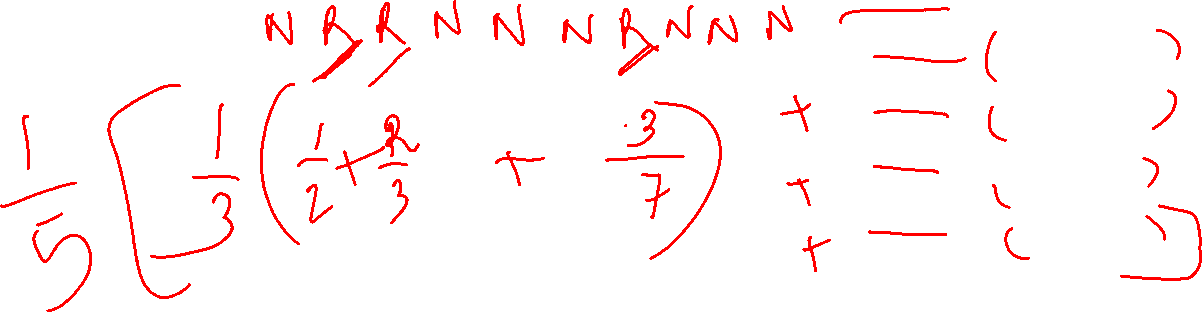 N R R N N N R N N N —
1/5 [ 1/3 ( 1/2 + 2/3 + 3/7 ) + — ( )
+ — ( )
+ — ( )
+ — ( ) ]